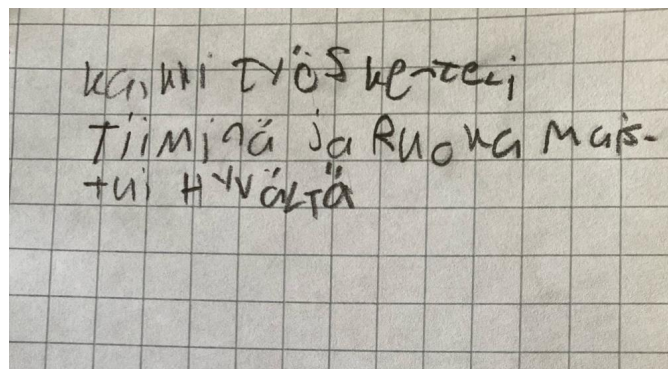 kaikki TYÖSkenteli
Tiiminä ja Ruoka Mais-
tui HYVÄLTÄ